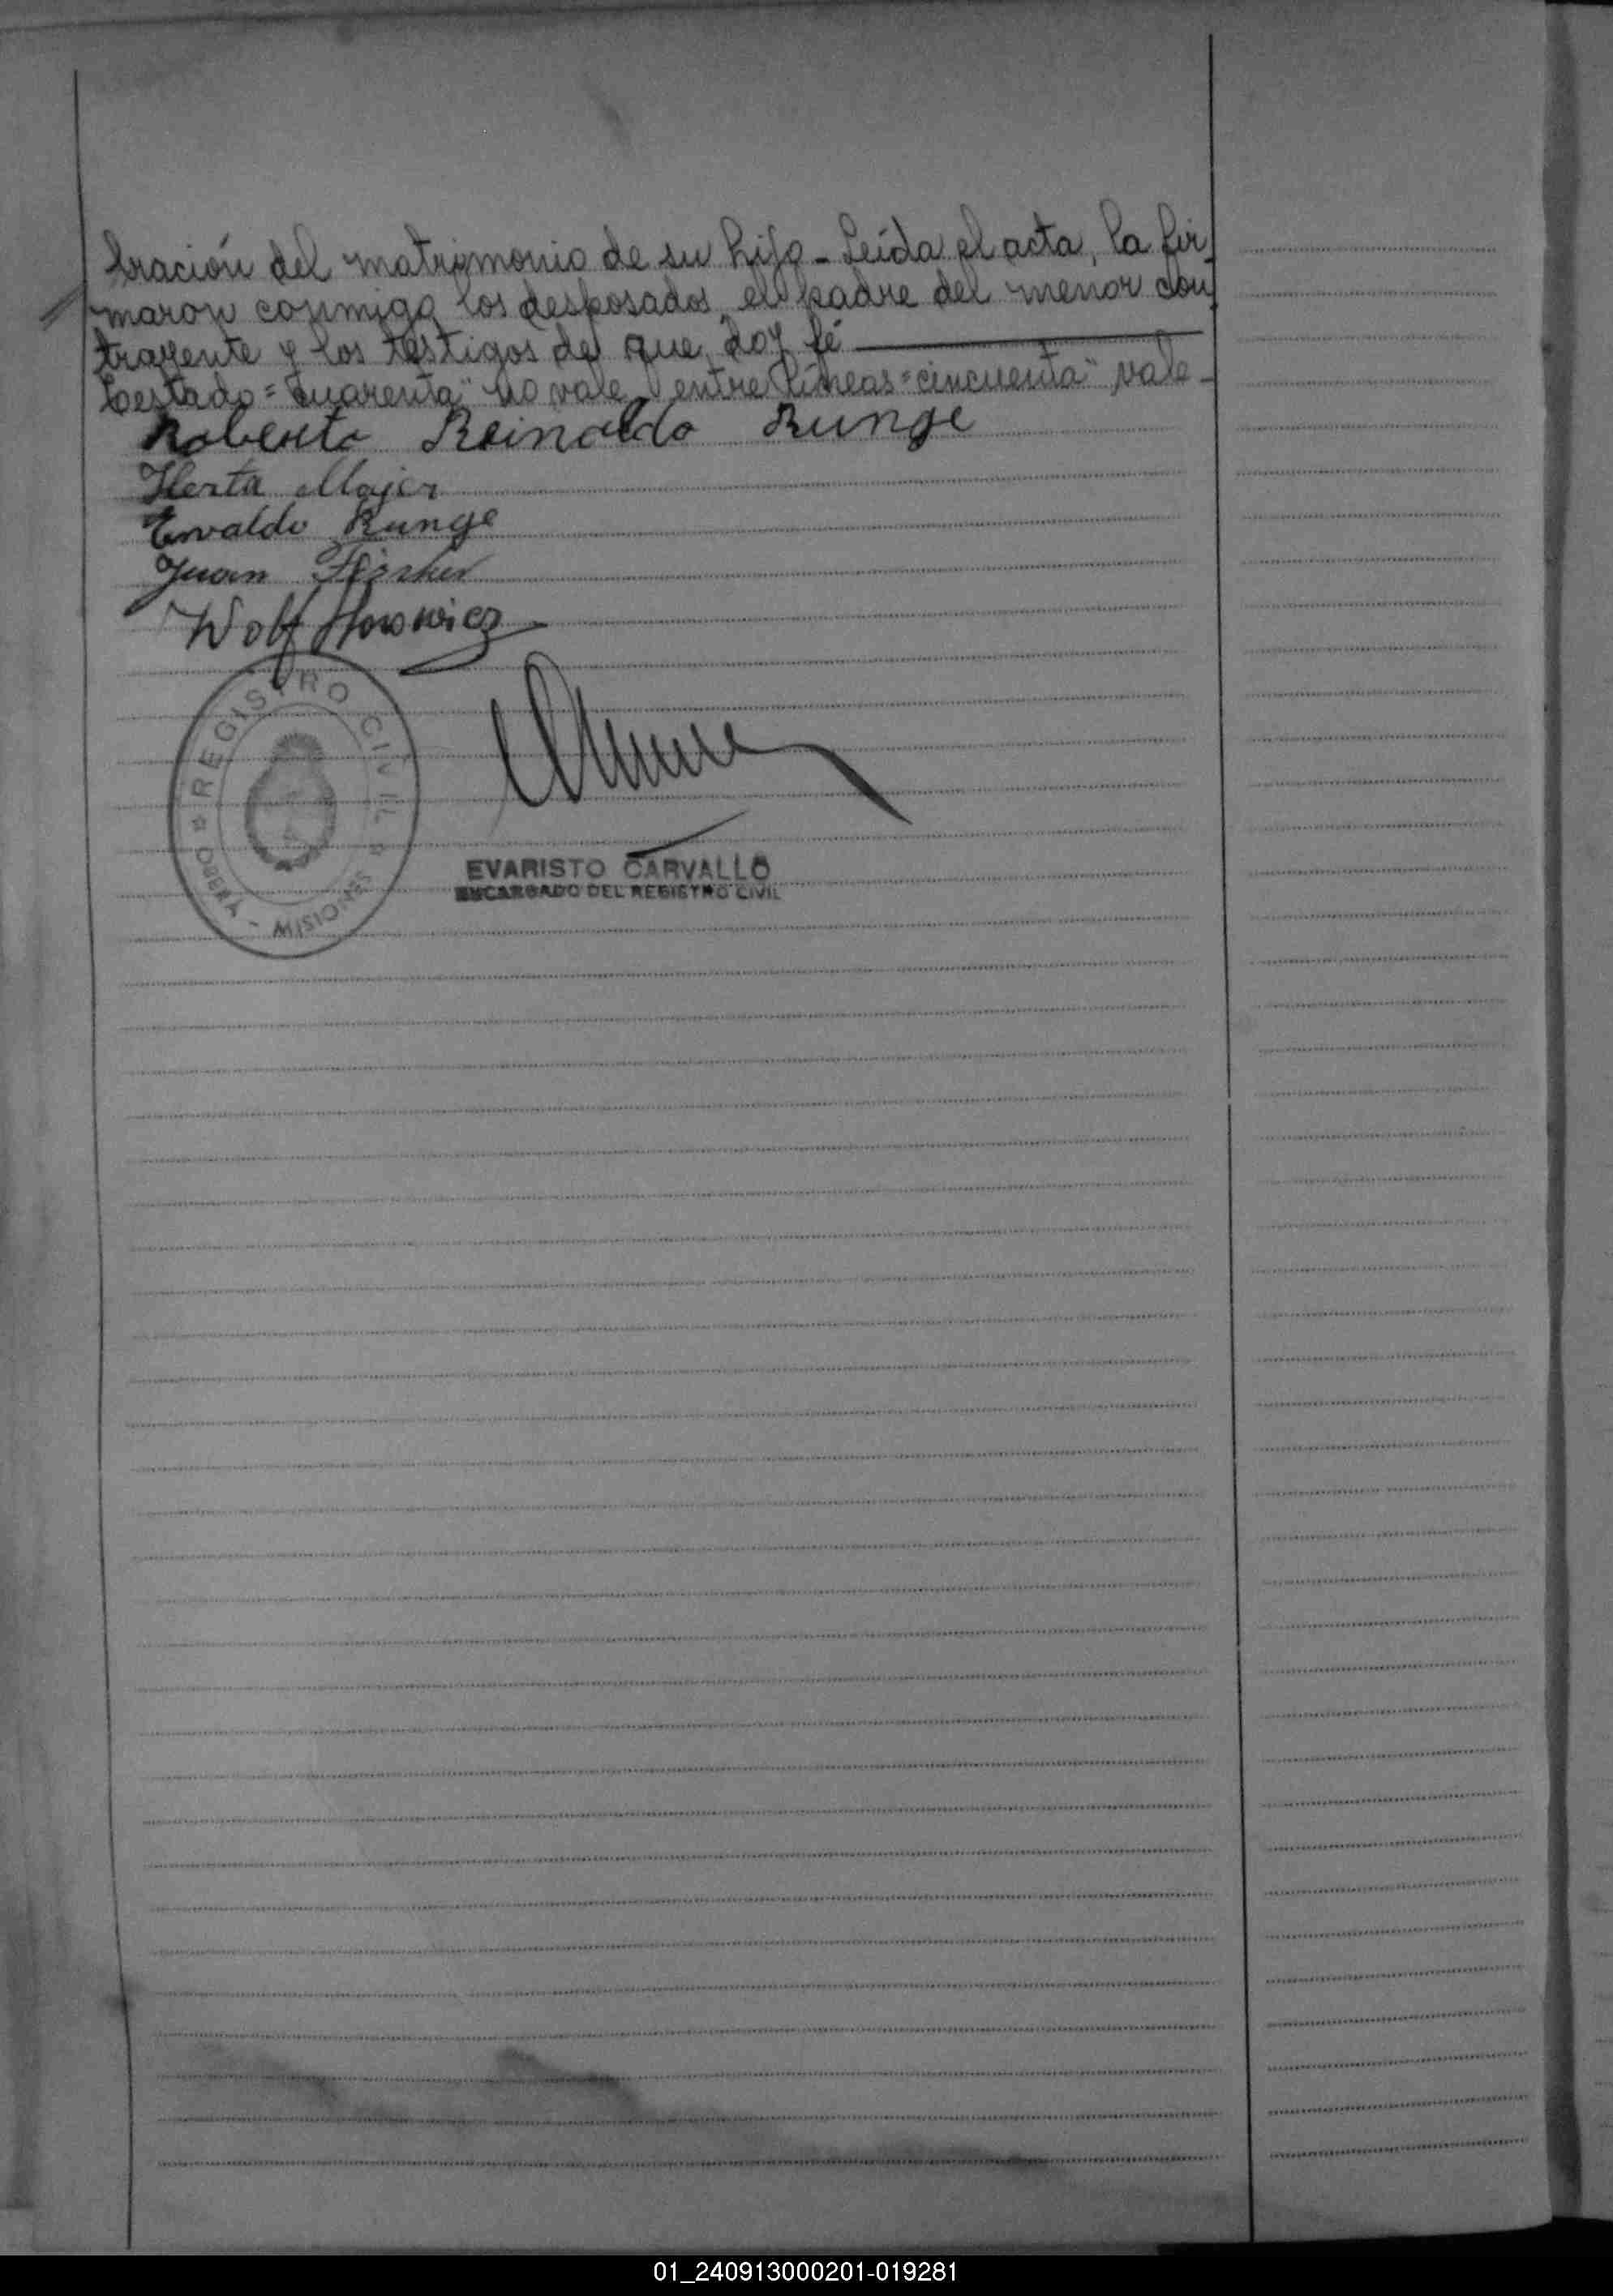 bración del matrimonio de su hijo - Leída el acta, la fir-
maron conmigo los desposados, el padre del menor con
trayente y los testigos de que doy fé
Testado = "cuarenta" no vale, entre líneas = cincuenta" vale -
Roberto Reinaldo Runge
Herta Majer
Ervaldo Runge
Juan
Wolf Horowicz
REGISTRO CIVIL
OBERA - MISIONES
EVARISTO CARVALLO
ENCARGADO DEL REGISTRO CIVIL
01_240913000201-019281